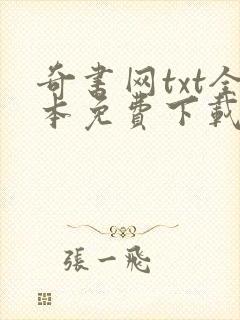 奇書网txt全
本免費下載
張一飛